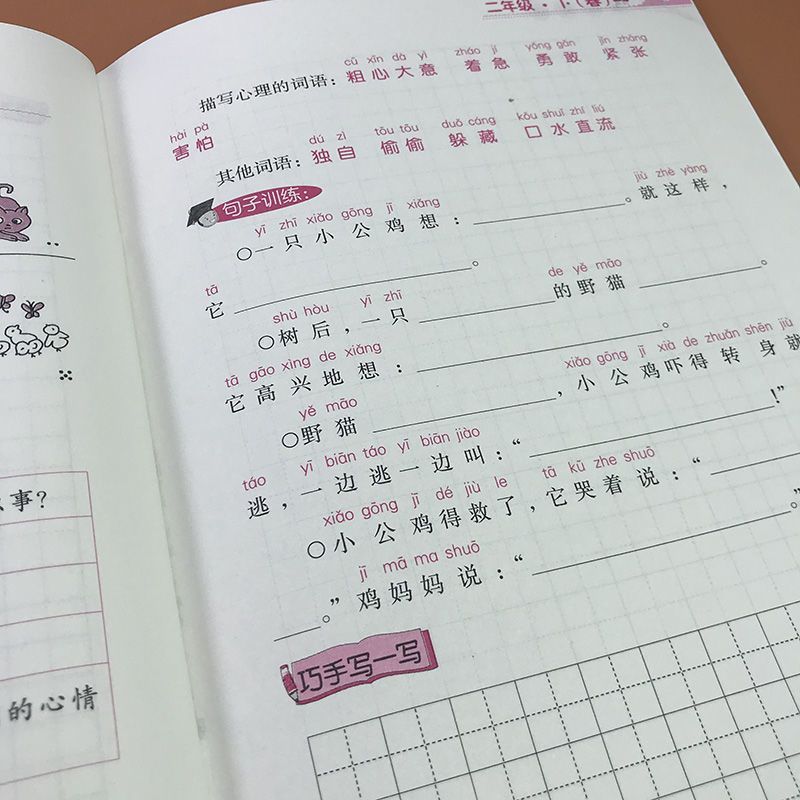 二年级·下(春)
cū xīn dà yì zháo jí yǒng gǎn jǐn zhāng
描写心理的词语:粗心大意 着急 勇敢 紧张
hài pà
害怕
dú zì tōu tōu duǒ cáng kǒu shuǐ zhí liú
其他词语:独自 偷偷 躲藏 口水直流
句子训练:
yī zhī xiǎo gōng jī xiǎng jiù zhè yàng
○一只小公鸡想:______。就这样,
tā
它______。
shù hòu yī zhī de yě māo
○树后,一只______的野猫______。
tā gāo xìng de xiǎng
它高兴地想:______。
yě māo xiǎo gōng jī xià de zhuǎn shēn jiù
○野猫______,小公鸡吓得转身就
táo yī biān táo yī biān jiào
逃,一边逃一边叫:“______!”
xiǎo gōng jī dé jiù le tā kū zhe shuō
○小公鸡得救了,它哭着说:“______
jī mā ma shuō
____。”鸡妈妈说:“______。”
巧手写一写
事?
的心情